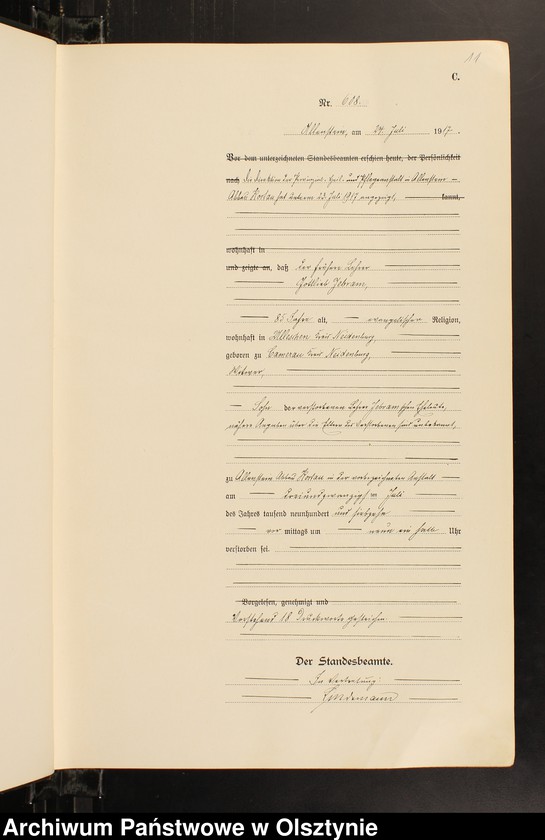 11
C.
Nr. 608.
Allenstein, am 24. Juli 1917.
Vor dem unterzeichneten Standesbeamten erschien heute, der Persönlichkeit
nach die Direktion der Provinzial-Heil- und Pflegeanstalt in Allenstein –
Abbau Kortau hat unterm 23. Juli 1917 angezeigt, kannt,
wohnhaft in
und zeigte an, daß der frühere Lehrer
Gottlieb
85 Jahre alt, evangelischer Religion,
wohnhaft in Kreis Neidenburg,
geboren zu Camerau Kreis Neidenburg,
Witwer,
Sohn der verstorbenen Lehrer Eheleute,
nähere Angaben über die Eltern des Verstorbenen sind unbekannt,
zu Allenstein Abbau Kortau in der vorbezeichneten Anstalt
am dreiundzwanzigsten Juli
des Jahres tausend neunhundert und siebzehn
vor mittags um neun ein halb Uhr
verstorben sei.
Vorgelesen, genehmigt und
Vorstehend 18 Druckworte gestrichen.
Der Standesbeamte.
In Vertretung:
Lindemann
Archiwum Państwowe w Olsztynie